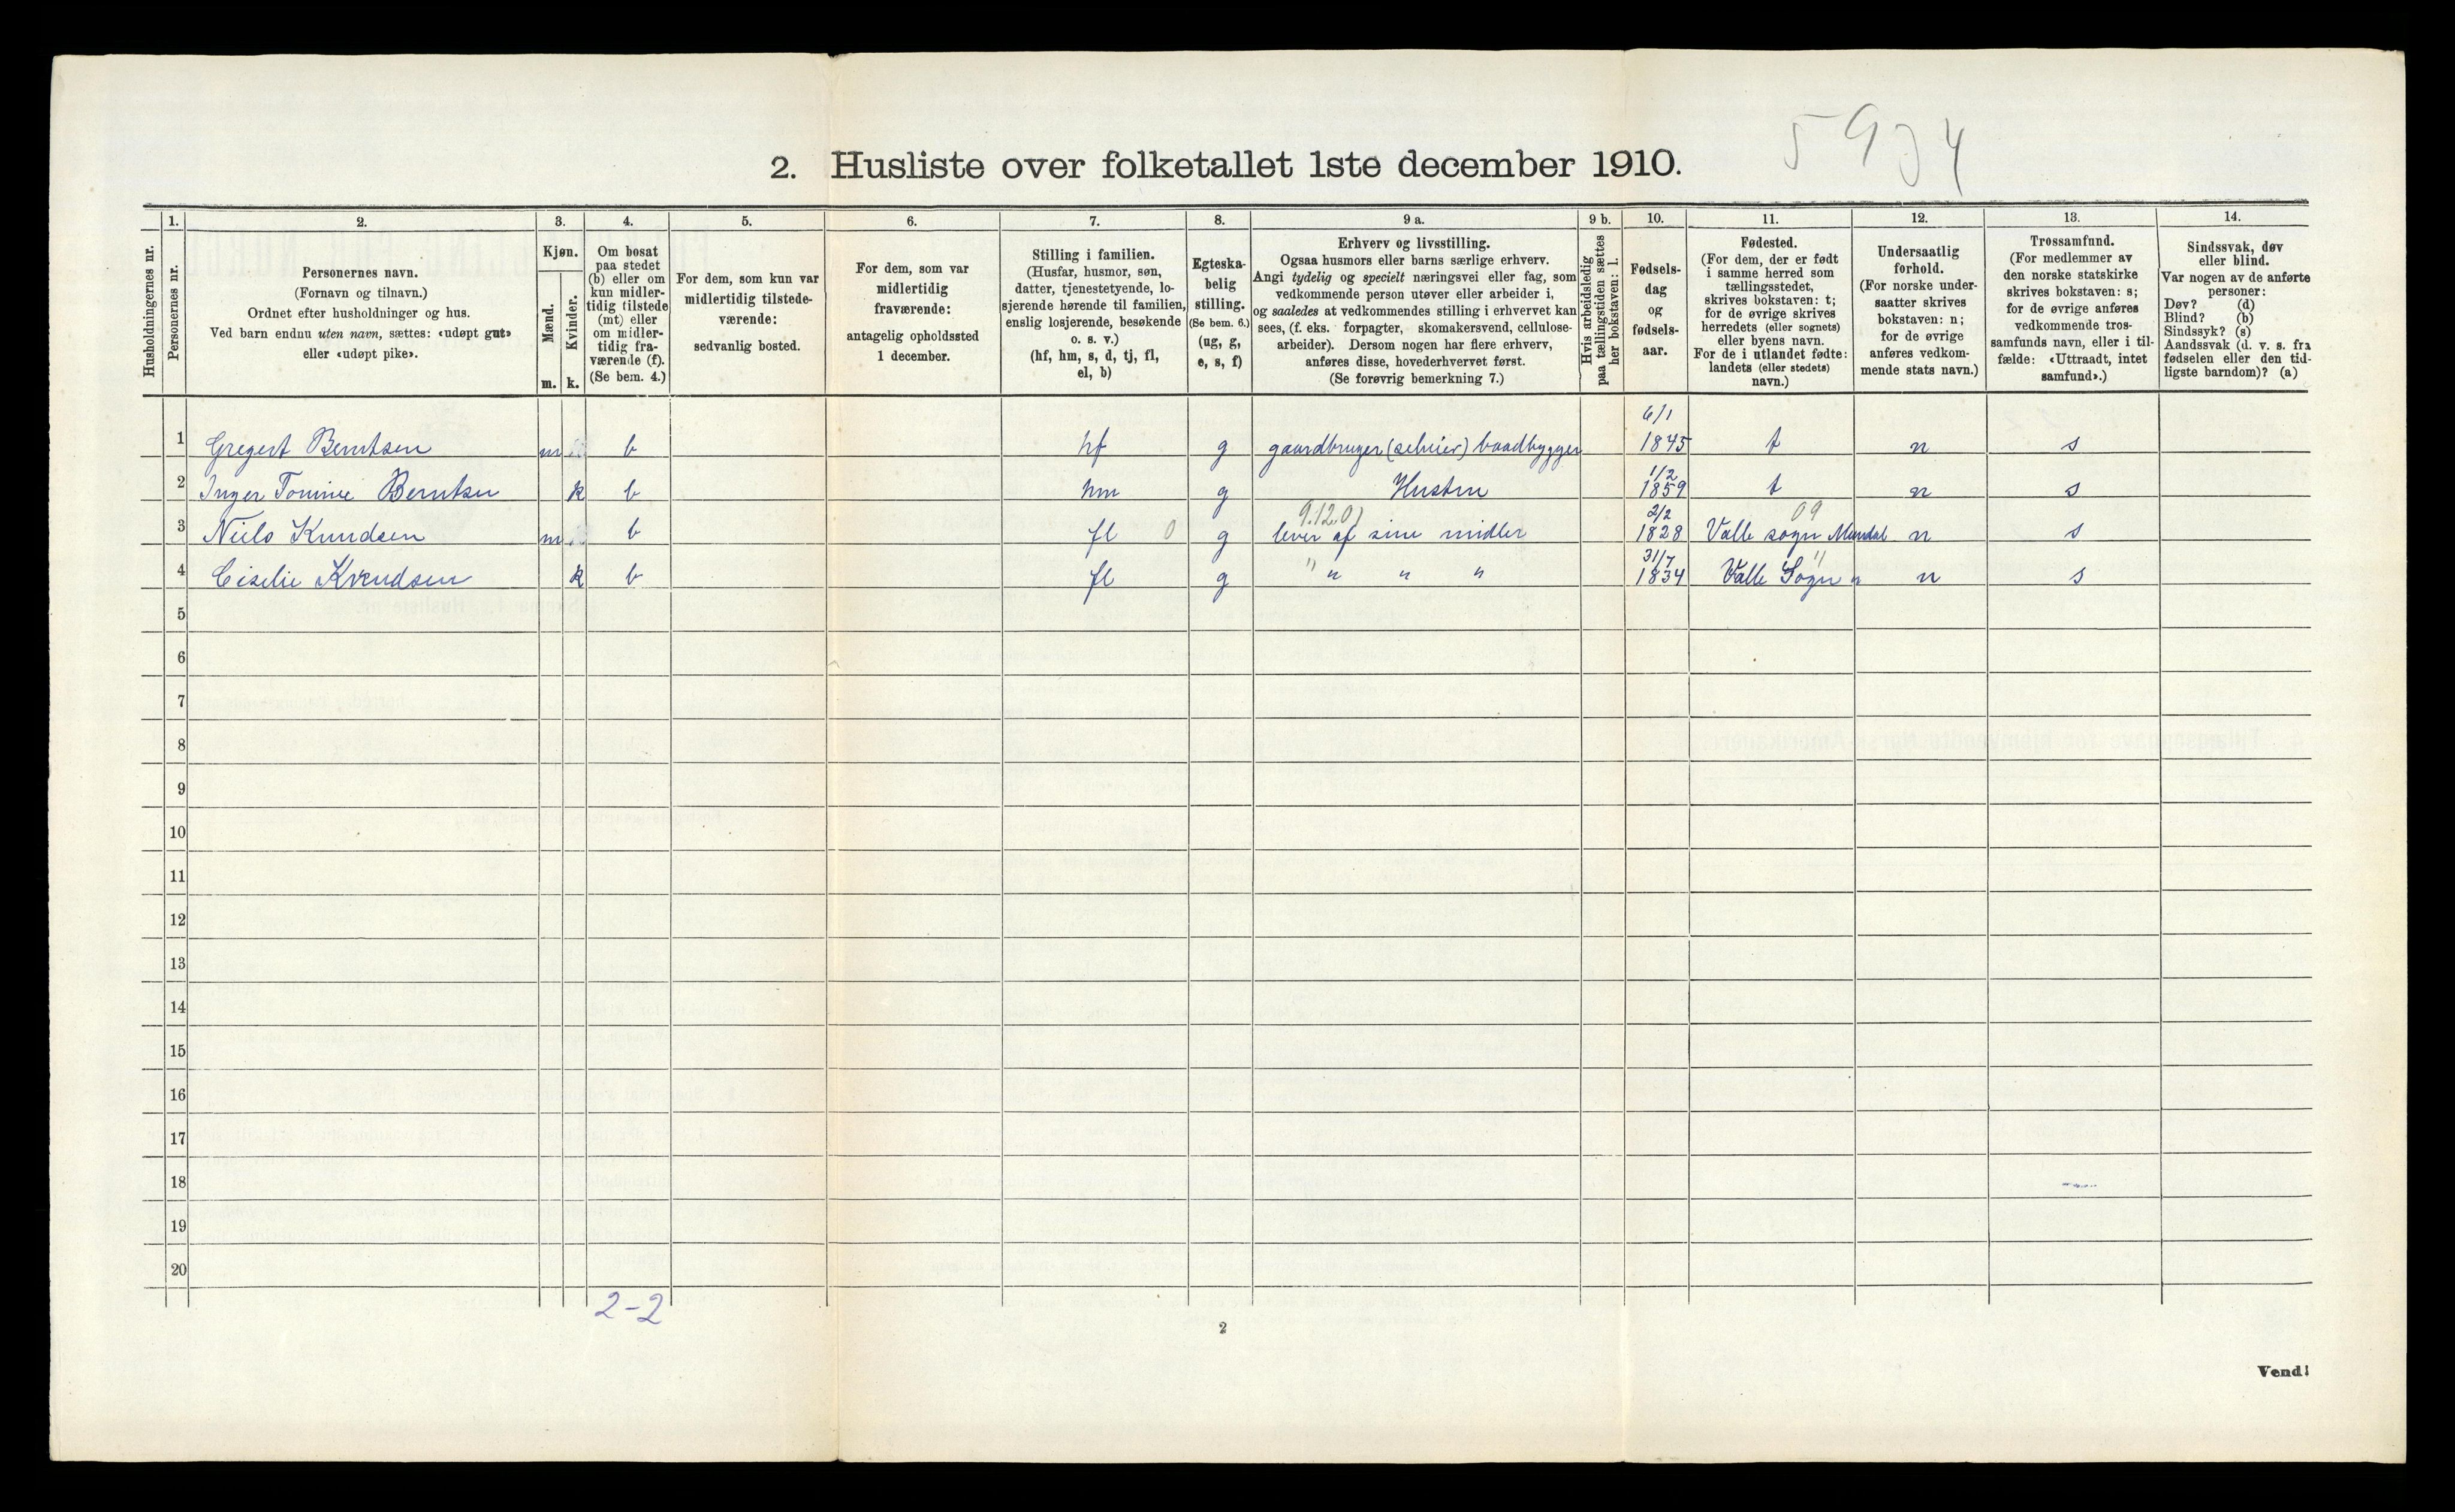 5934
2. Husliste over folketallet 1ste december 1910.
Husholdningernes nr.
1.
Personernes nr.
2.
Personernes navn.
(Fornavn og tilnavn.)
Ordnet efter husholdninger og hus.
Ved barn endnu uten navn, sættes: «udøpt gut»
eller «udøpt pike».
3.
Kjøn.
Mænd.
Kvinder.
m. k.
4.
Om bosat
paa stedet
(b) eller om
kun midler-
tidig tilstede
(mt) eller
om midler-
tidig fra-
værende (f).
(Se bem. 4.)
5.
For dem, som kun var
midlertidig tilstede-
værende:
sedvanlig bosted.
6.
For dem, som var
midlertidig
fraværende:
antagelig opholdssted
1 december.
7.
Stilling i familien.
(Husfar, husmor, søn,
datter, tjenestetyende, lo-
sjerende hørende til familien,
enslig losjerende, besøkende
o. s. v.)
(hf, hm, s, d, tj, fl,
el, b)
8.
Egteska-
belig
stilling.
(Se bem. 6.)
(ug, g,
e, s, f)
9 a.
Erhverv og livsstilling.
Ogsaa husmors eller barns særlige erhverv.
Angi tydelig og specielt næringsvei eller fag, som
vedkommende person utøver eller arbeider i,
og saaledes at vedkommendes stilling i erhvervet kan
sees, (f. eks. forpagter, skomakersvend, cellulose-
arbeider). Dersom nogen har flere erhverv,
anføres disse, hovederhvervet først.
(Se forøvrig bemerkning 7.)
9 b.
Hvis arbeidsledig
paa tællingstiden sættes
her bokstaven: l.
10.
Fødsels-
dag
og
fødsels-
aar.
11.
Fødested.
(For dem, der er født
i samme herred som
tællingsstedet,
skrives bokstaven: t;
for de øvrige skrives
herredets (eller sognets)
eller byens navn.
For de i utlandet fødte:
landets (eller stedets)
navn.)
12.
Undersaatlig
forhold.
(For norske under-
saatter skrives
bokstaven: n;
for de øvrige
anføres vedkom-
mende stats navn.)
13.
Trossamfund.
(For medlemmer av
den norske statskirke
skrives bokstaven: s;
for de øvrige anføres
vedkommende tros-
samfunds navn, eller i til-
fælde: «Uttraadt, intet
samfund».)
14.
Sindssvak, døv
eller blind.
Var nogen av de anførte
personer:
Døv? (d)
Blind? (b)
Sindssyk? (s)
Aandssvak (d. v. s. fra
fødselen eller den tid-
ligste barndom)? (a)
6/1
1 Gregert Berntsen m b hf g gaardbruger (selveier) baadbygger 1845 t n s
1/2
2 Inger Tomine Berntsen k b hm g Hustru 1859 t n s
9.12.0) 2/2 09
3 Niels Knudsen m b fl 0 g lever af sine midler 1828 Valle sogn Mandal n s
31/7
4 Ciselie Knudsen k b fl g " " " " 1834 Valle Sogn " n s
5
6
7
8
9
10
11
12
13
14
15
16
17
18
19
20
2-2
2
Vend!